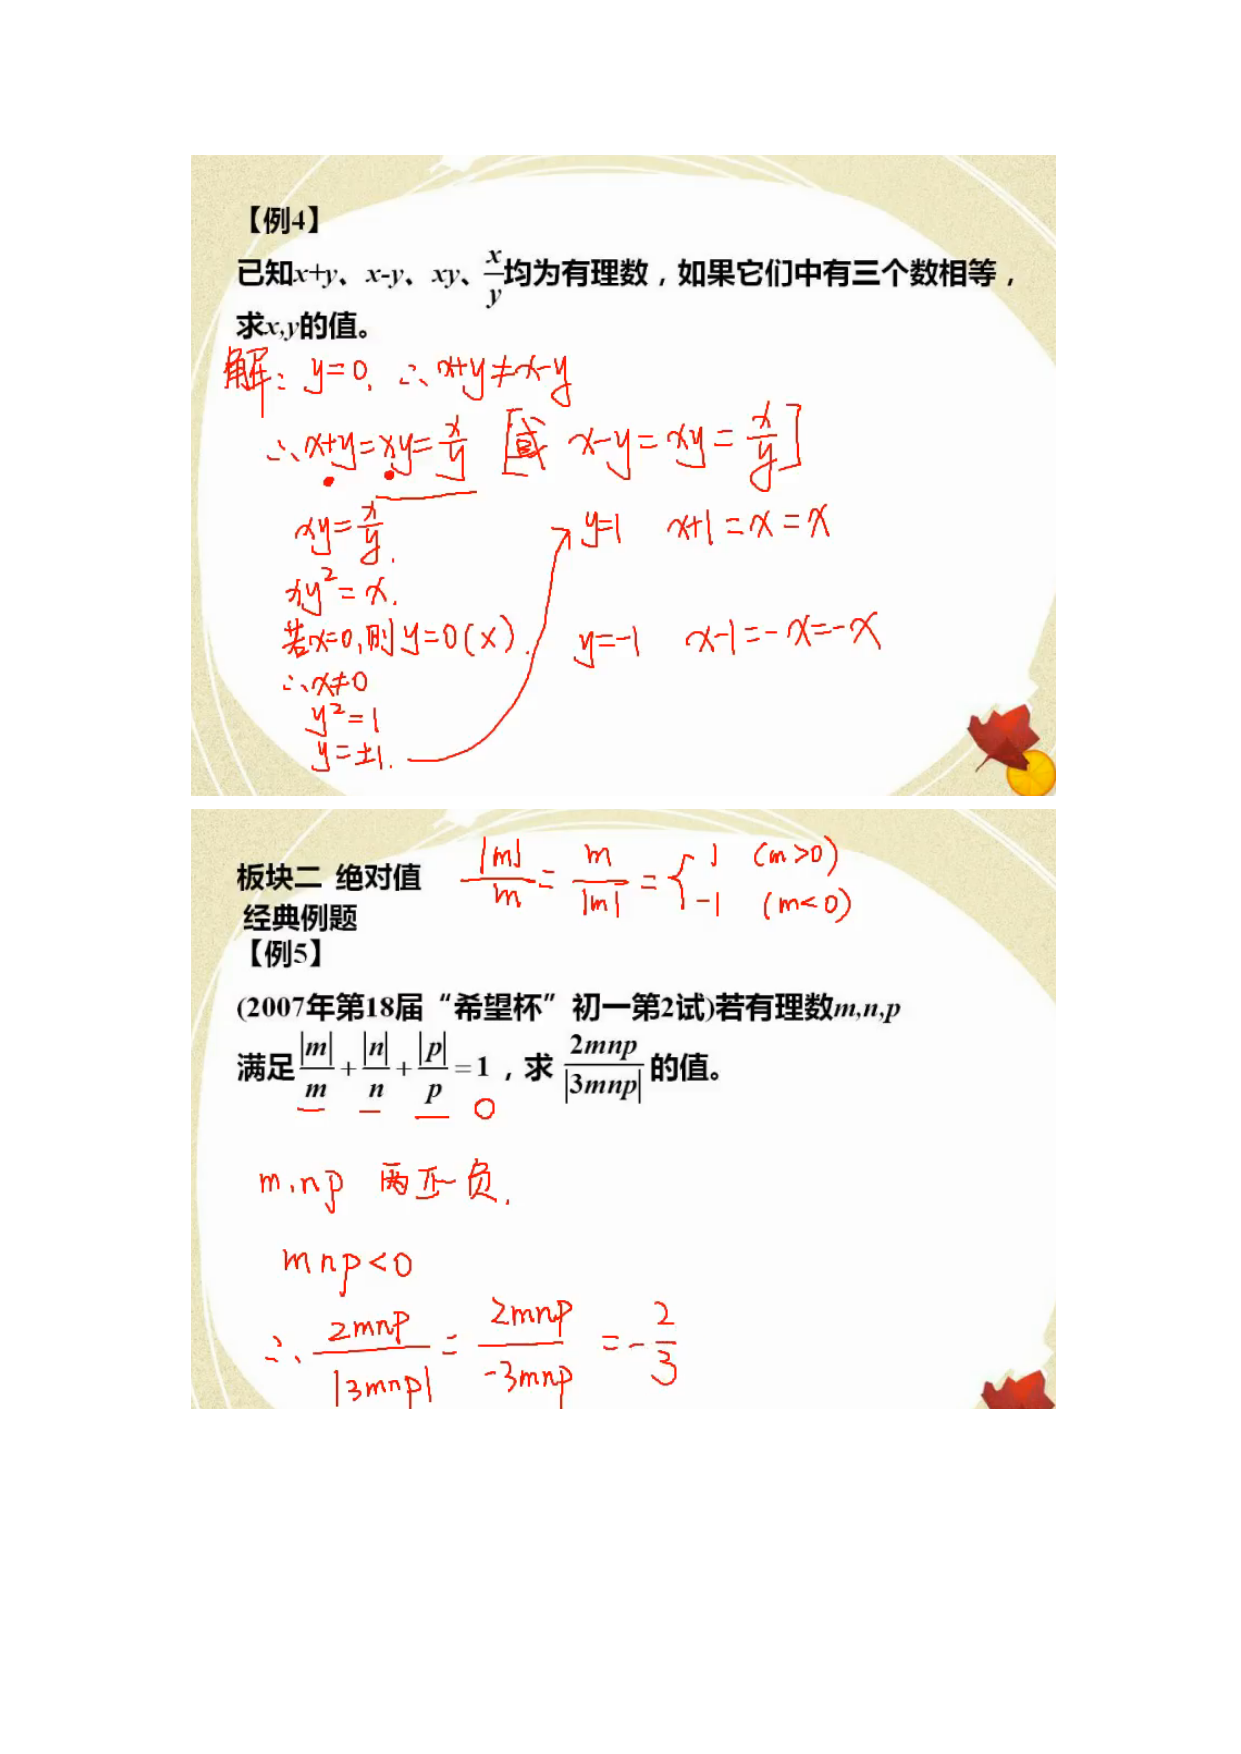 【例4】
已知x+y、x-y、xy、x/y均为有理数，如果它们中有三个数相等，
求x,y的值。
解： y=0, ∴ x+y≠x-y
∴ x+y=xy=x/y [或 x-y=xy=x/y]
xy=x/y.
y=1 x+1=x=x
xy²=x.
若x=0,则y=0(×).
y=-1 x-1=-x=-x
∴x≠0
y²=1
y=±1.
|m|/m = m/|m| = { 1 (m>0)
-1 (m<0)
板块二 绝对值
经典例题
【例5】
(2007年第18届“希望杯”初一第2试)若有理数m,n,p
满足|m|/m+|n|/n+|p|/p=1，求 2mnp/|3mnp| 的值。
0
m,n,p 两正一负.
mnp<0
∴ 2mnp/|3mnp| = 2mnp/-3mnp = -2/3